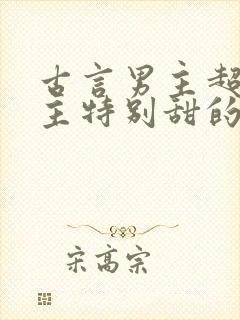 古言男主超
主特别甜的
宋高宗